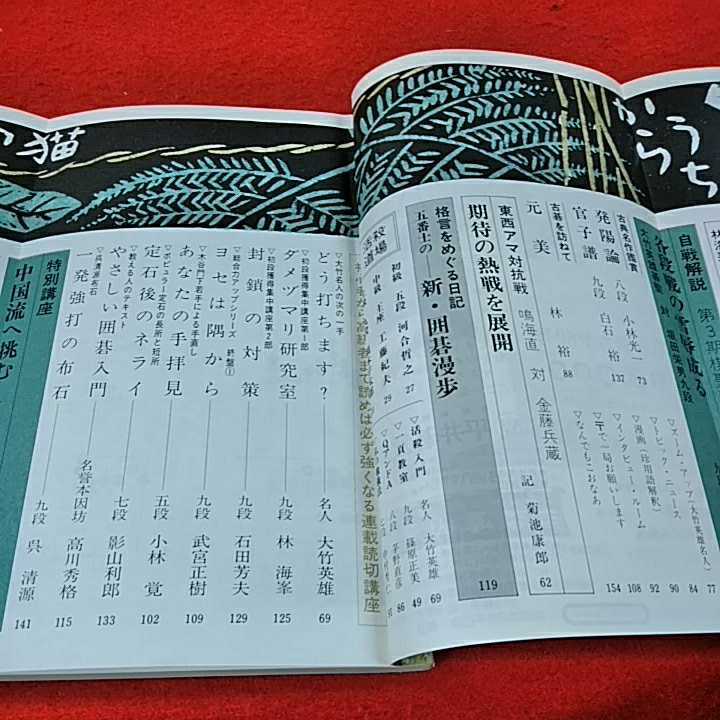 うち
から
の猫
自戦解説 第3期棋
古典名作鑑賞
発陽論 八段 小林光一 73
官子譜 九段 白石 裕 137
古碁を訪ねて
元美 林 裕 88
▽ズーム・アップ(大竹英雄名人) 77
▽トピック・ニュース 84
▽漫画(珍用語解釈) 90
▽インタビュー・ルーム 92
▽〒で一局お願いします 108
▽なんでもこおなあ 154
東西アマ対抗戦
期待の熱戦を展開
鳴海直 対 金藤兵蔵
記 菊池康郎 62
格言をめぐる日記
五番士の 新・囲碁漫歩 119
初級 五段 河合哲之 27
中級 王座 工藤紀夫 29
▽活殺入門 名人 大竹英雄 69
▽一頁教室 九段 篠原正美 49
▽QアンドA 八段 茅野直彦 86
読めば必ず強くなる連載読切講座
▽大竹名人の次の一手
どう打ちます? 名人 大竹英雄 69
▽初段獲得集中講座第1部
ダメヅマリ研究室 九段 林 海峯 125
▽初段獲得集中講座第2部
封鎖の対策 九段 石田芳夫 129
▽総合力アップシリーズ 終盤①
ヨセは隅から 九段 武宮正樹 109
▽木谷門下若手による手直し
あなたの手拝見 五段 小林 覚 102
▽ポピュラー定石の長所と短所
定石後のネライ 七段 影山利郎 133
▽教える人のテキスト
やさしい囲碁入門 名誉本因坊 高川秀格 115
▽呉清源名石
一発強打の布石 九段 呉 清源 141
特別講座
中国流へ挑む